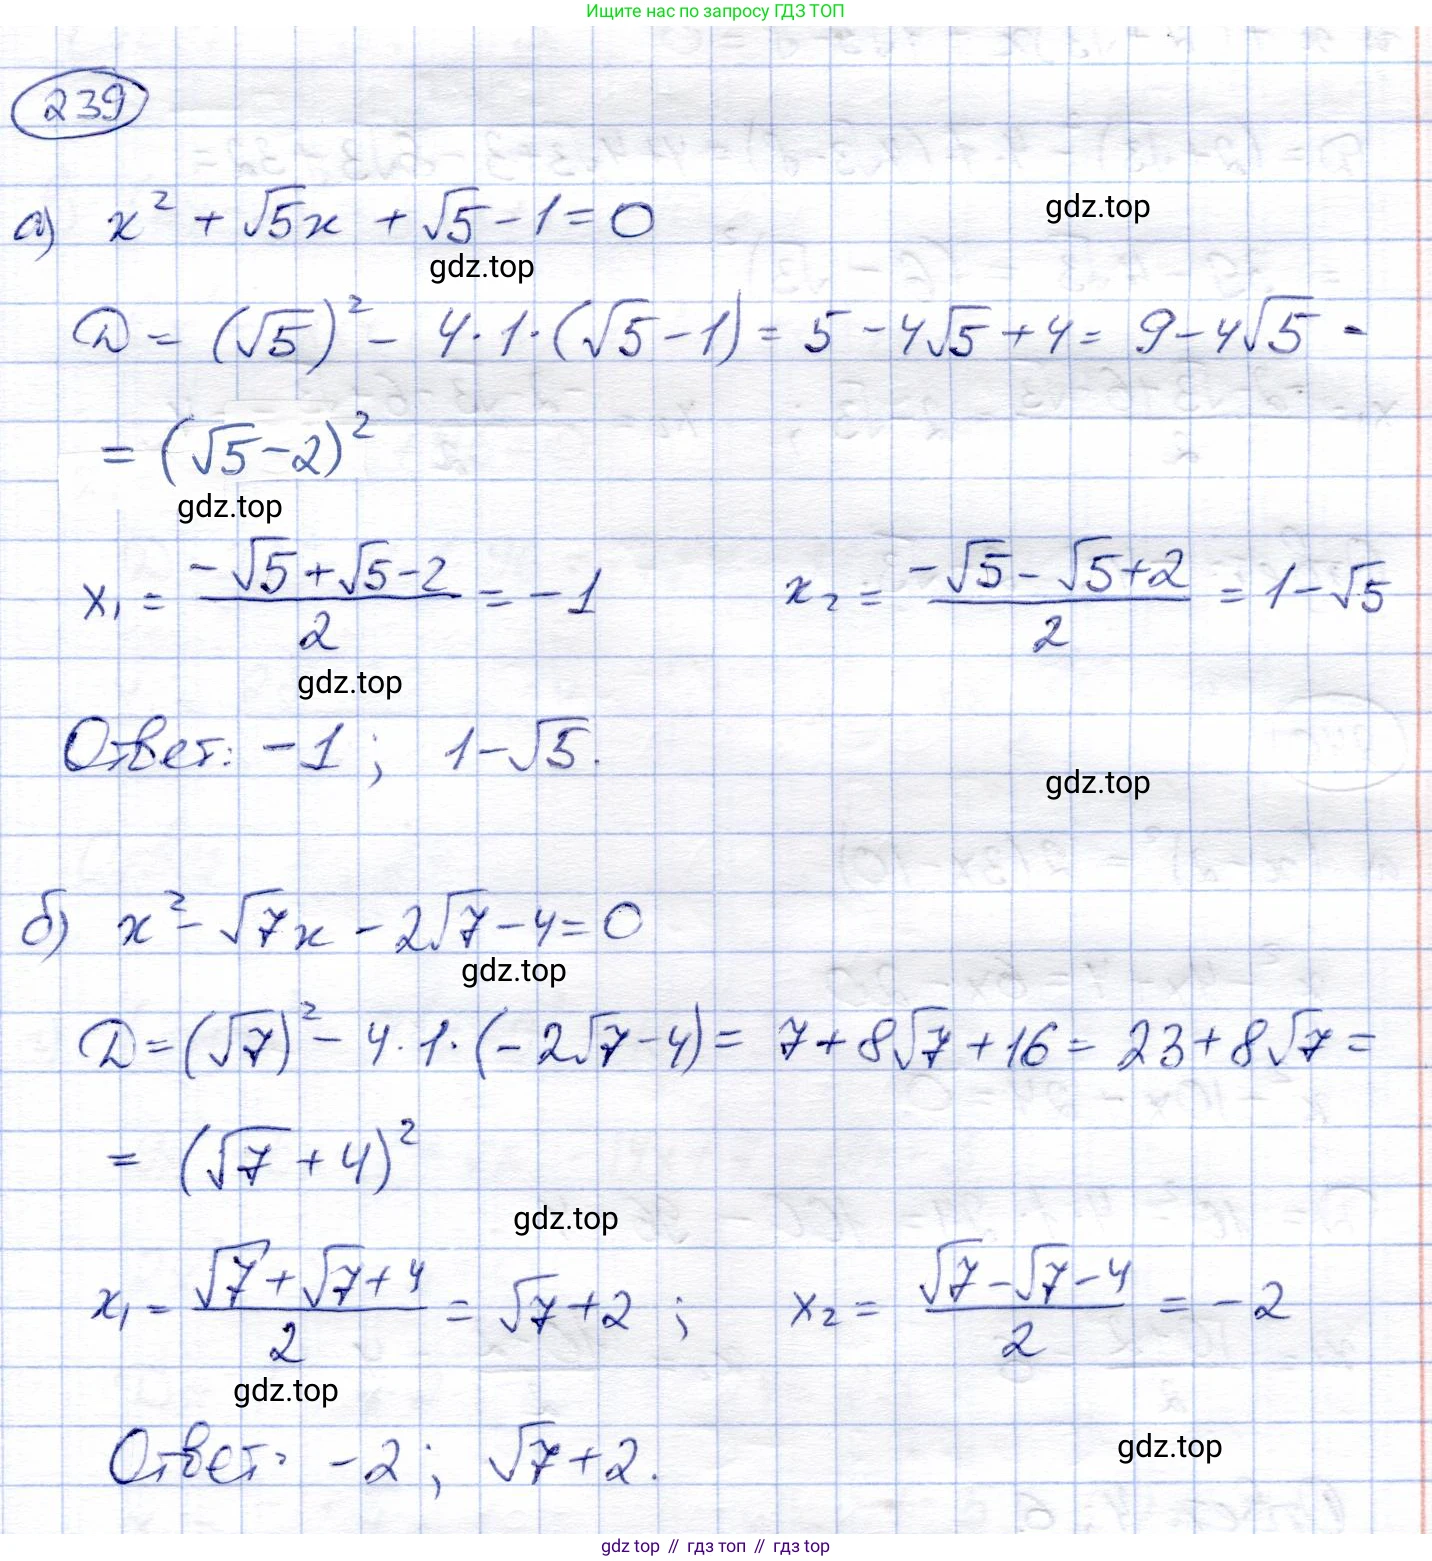 Ищите нас по запросу ГДЗ ТОП
239
а) x² + √5x + √5 - 1 = 0
gdz.top
gdz.top
D = (√5)² - 4·1·(√5 - 1) = 5 - 4√5 + 4 = 9 - 4√5 =
= (√5 - 2)²
gdz.top
x₁ = (-√5 + √5 - 2)/2 = -1 x₂ = (-√5 - √5 + 2)/2 = 1 - √5
gdz.top
Ответ: -1; 1 - √5.
gdz.top
б) x² - √7x - 2√7 - 4 = 0
gdz.top
D = (√7)² - 4·1·(-2√7 - 4) = 7 + 8√7 + 16 = 23 + 8√7 =
= (√7 + 4)²
gdz.top
x₁ = (√7 + √7 + 4)/2 = √7 + 2 ; x₂ = (√7 - √7 - 4)/2 = -2
gdz.top
Ответ: -2; √7 + 2.
gdz.top
gdz top // гдз топ // гдз top